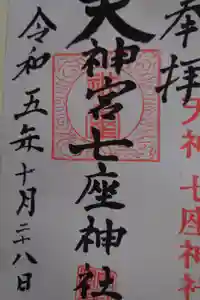 奉拝
天神宮七座神社
天神 七座神社
令和五年十月二十八日